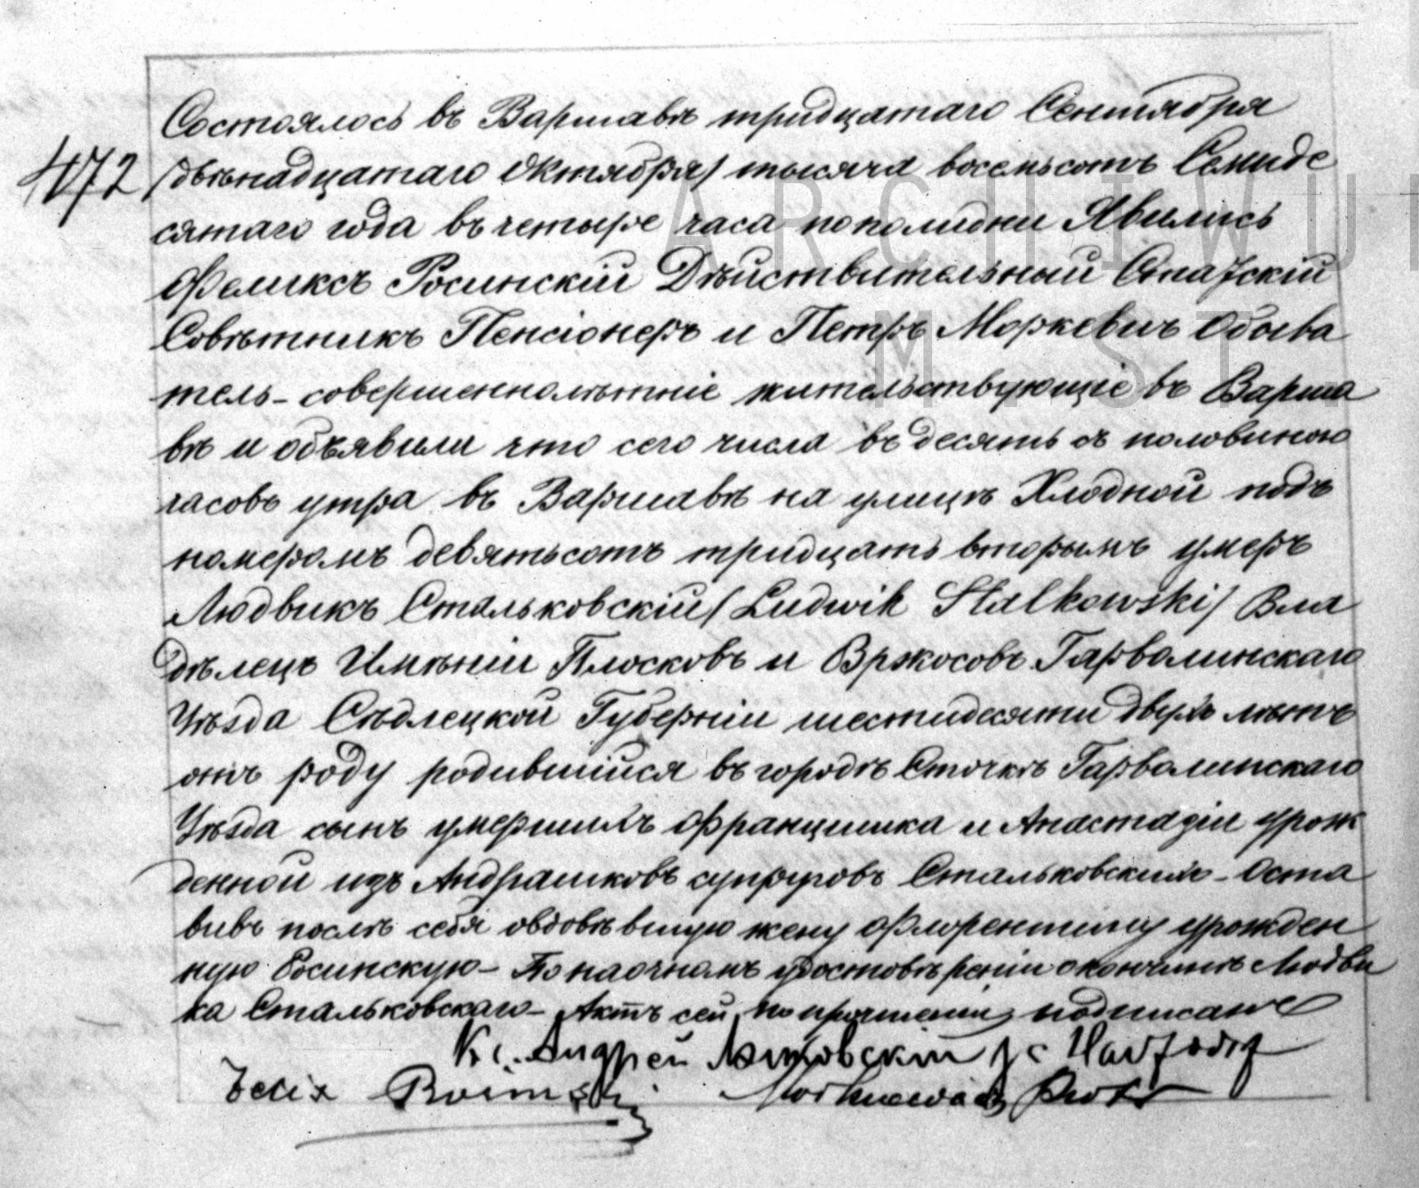 472
Состоялось въ Варшавѣ тридцатаго Сентября
/двѣнадцатаго Октября/ тысяча восемьсотъ Семиде
сятаго года въ четыре часа пополудни Явились
Феликсъ Росинскій Дѣйствительный Статскій
Совѣтникъ Пенсіонеръ и Петръ Моркевичъ Обыва
тель - совершеннолѣтніе жительствующіе въ Варша
вѣ и объявили что сего числа въ десять съ половиною
часовъ утра въ Варшавѣ на улицѣ Хлодной подъ
номеромъ девятьсотъ тридцать вторымъ умеръ
Людвикъ Стальковскій /Ludwik Stalkowski/ Вла
дѣлецъ Имѣніи Плосковъ и Вржосовъ Гарволинскаго
Уѣзда Сѣдлецкой Губерніи шестидесяти двухъ лѣтъ
отъ роду родившійся въ городѣ Сточкѣ Гарволинскаго
Уѣзда сынъ умершихъ Францишка и Анастазіи урож
денной изъ Андрашковъ супруговъ Стальковскихъ - Оста
вивъ послѣ себя овдовѣвшую жену Флорентину урожден
ную Росинскую - По наочномъ удостовѣреніи о кончинѣ Людви
ка Стальковскаго - Актъ сей по прочтеніи подписанъ
Кс. Андрей
Felix